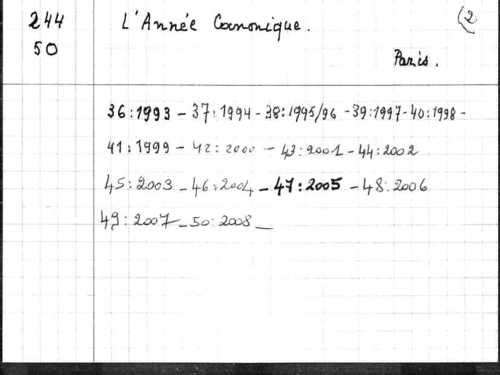 244 L'Année Canonique. (2
50
Paris.
36:1993 - 37:1994 - 38:1995/96 - 39:1997 - 40:1998 -
41:1999 - 42:2000 - 43:2001 - 44:2002
45:2003 - 46:2004 - 47:2005 - 48:2006
49:2007 - 50:2008 -